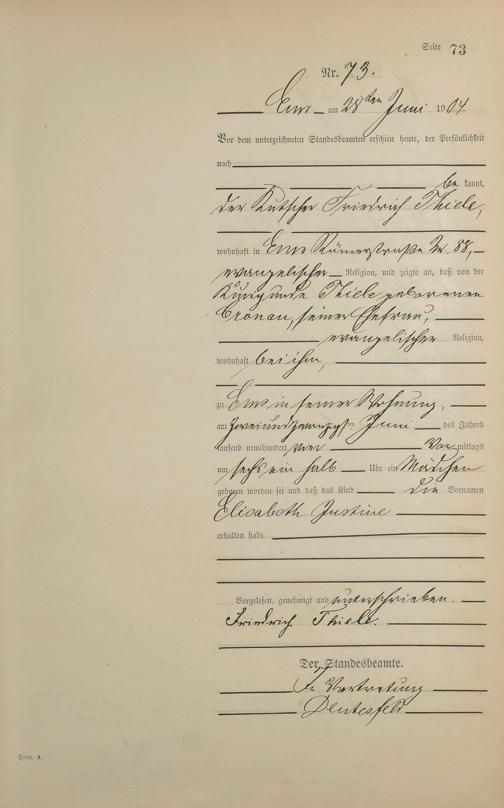 Seite 73
Nr. 73.
Ems am 28ten Juni 1904.
Vor dem unterzeichneten Standesbeamten erschien heute, der Persönlichkeit
nach
be kannt,
der Kutscher Friedrich Thiele,
wohnhaft in Ems Römerstraße Nr. 88,
evangelischer Religion, und zeigte an, daß von der
Kunigunde Thiele geborenen
Cronau, seiner Ehefrau,
evangelischer Religion,
wohnhaft bei ihm,
zu Ems in seiner Wohnung,
am zweiundzwanzigsten Juni des Jahres
tausend neunhundert vier Vor mittags
um sechs ein halb Uhr ein Mädchen
geboren worden sei und daß das Kind die Vornamen
Elisabeth Justine
erhalten habe.
Vorgelesen, genehmigt und unterschrieben
Friedrich Thiele.
Der Standesbeamte.
In Vertretung
Form. A.